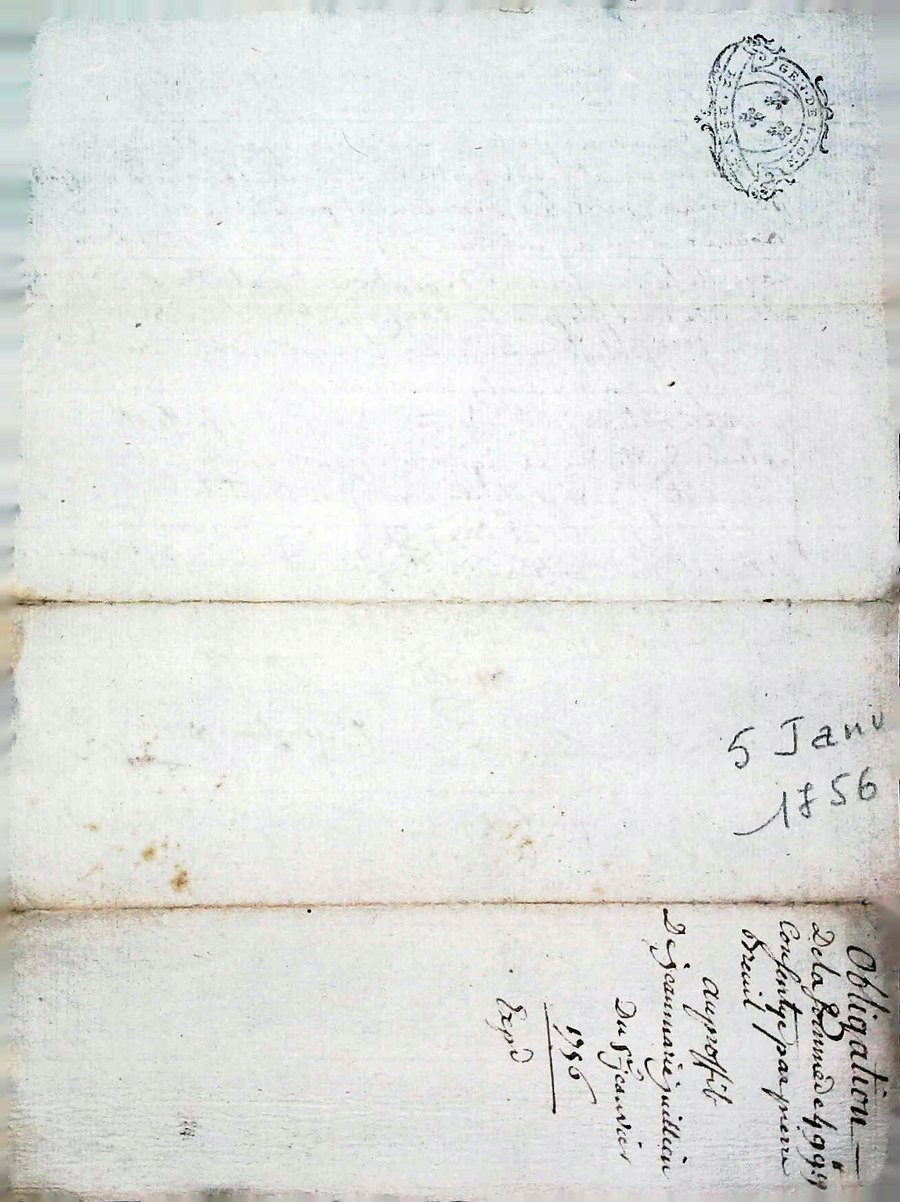 GEN. DE LION
5 Janv
1856
Obligation
De la somme de 499ᵗᵗ: 9
Consentye par pierre
Breuil
au proffit
De jeanmarie juillien
Du 5ᵉ janvier
1756
Expd